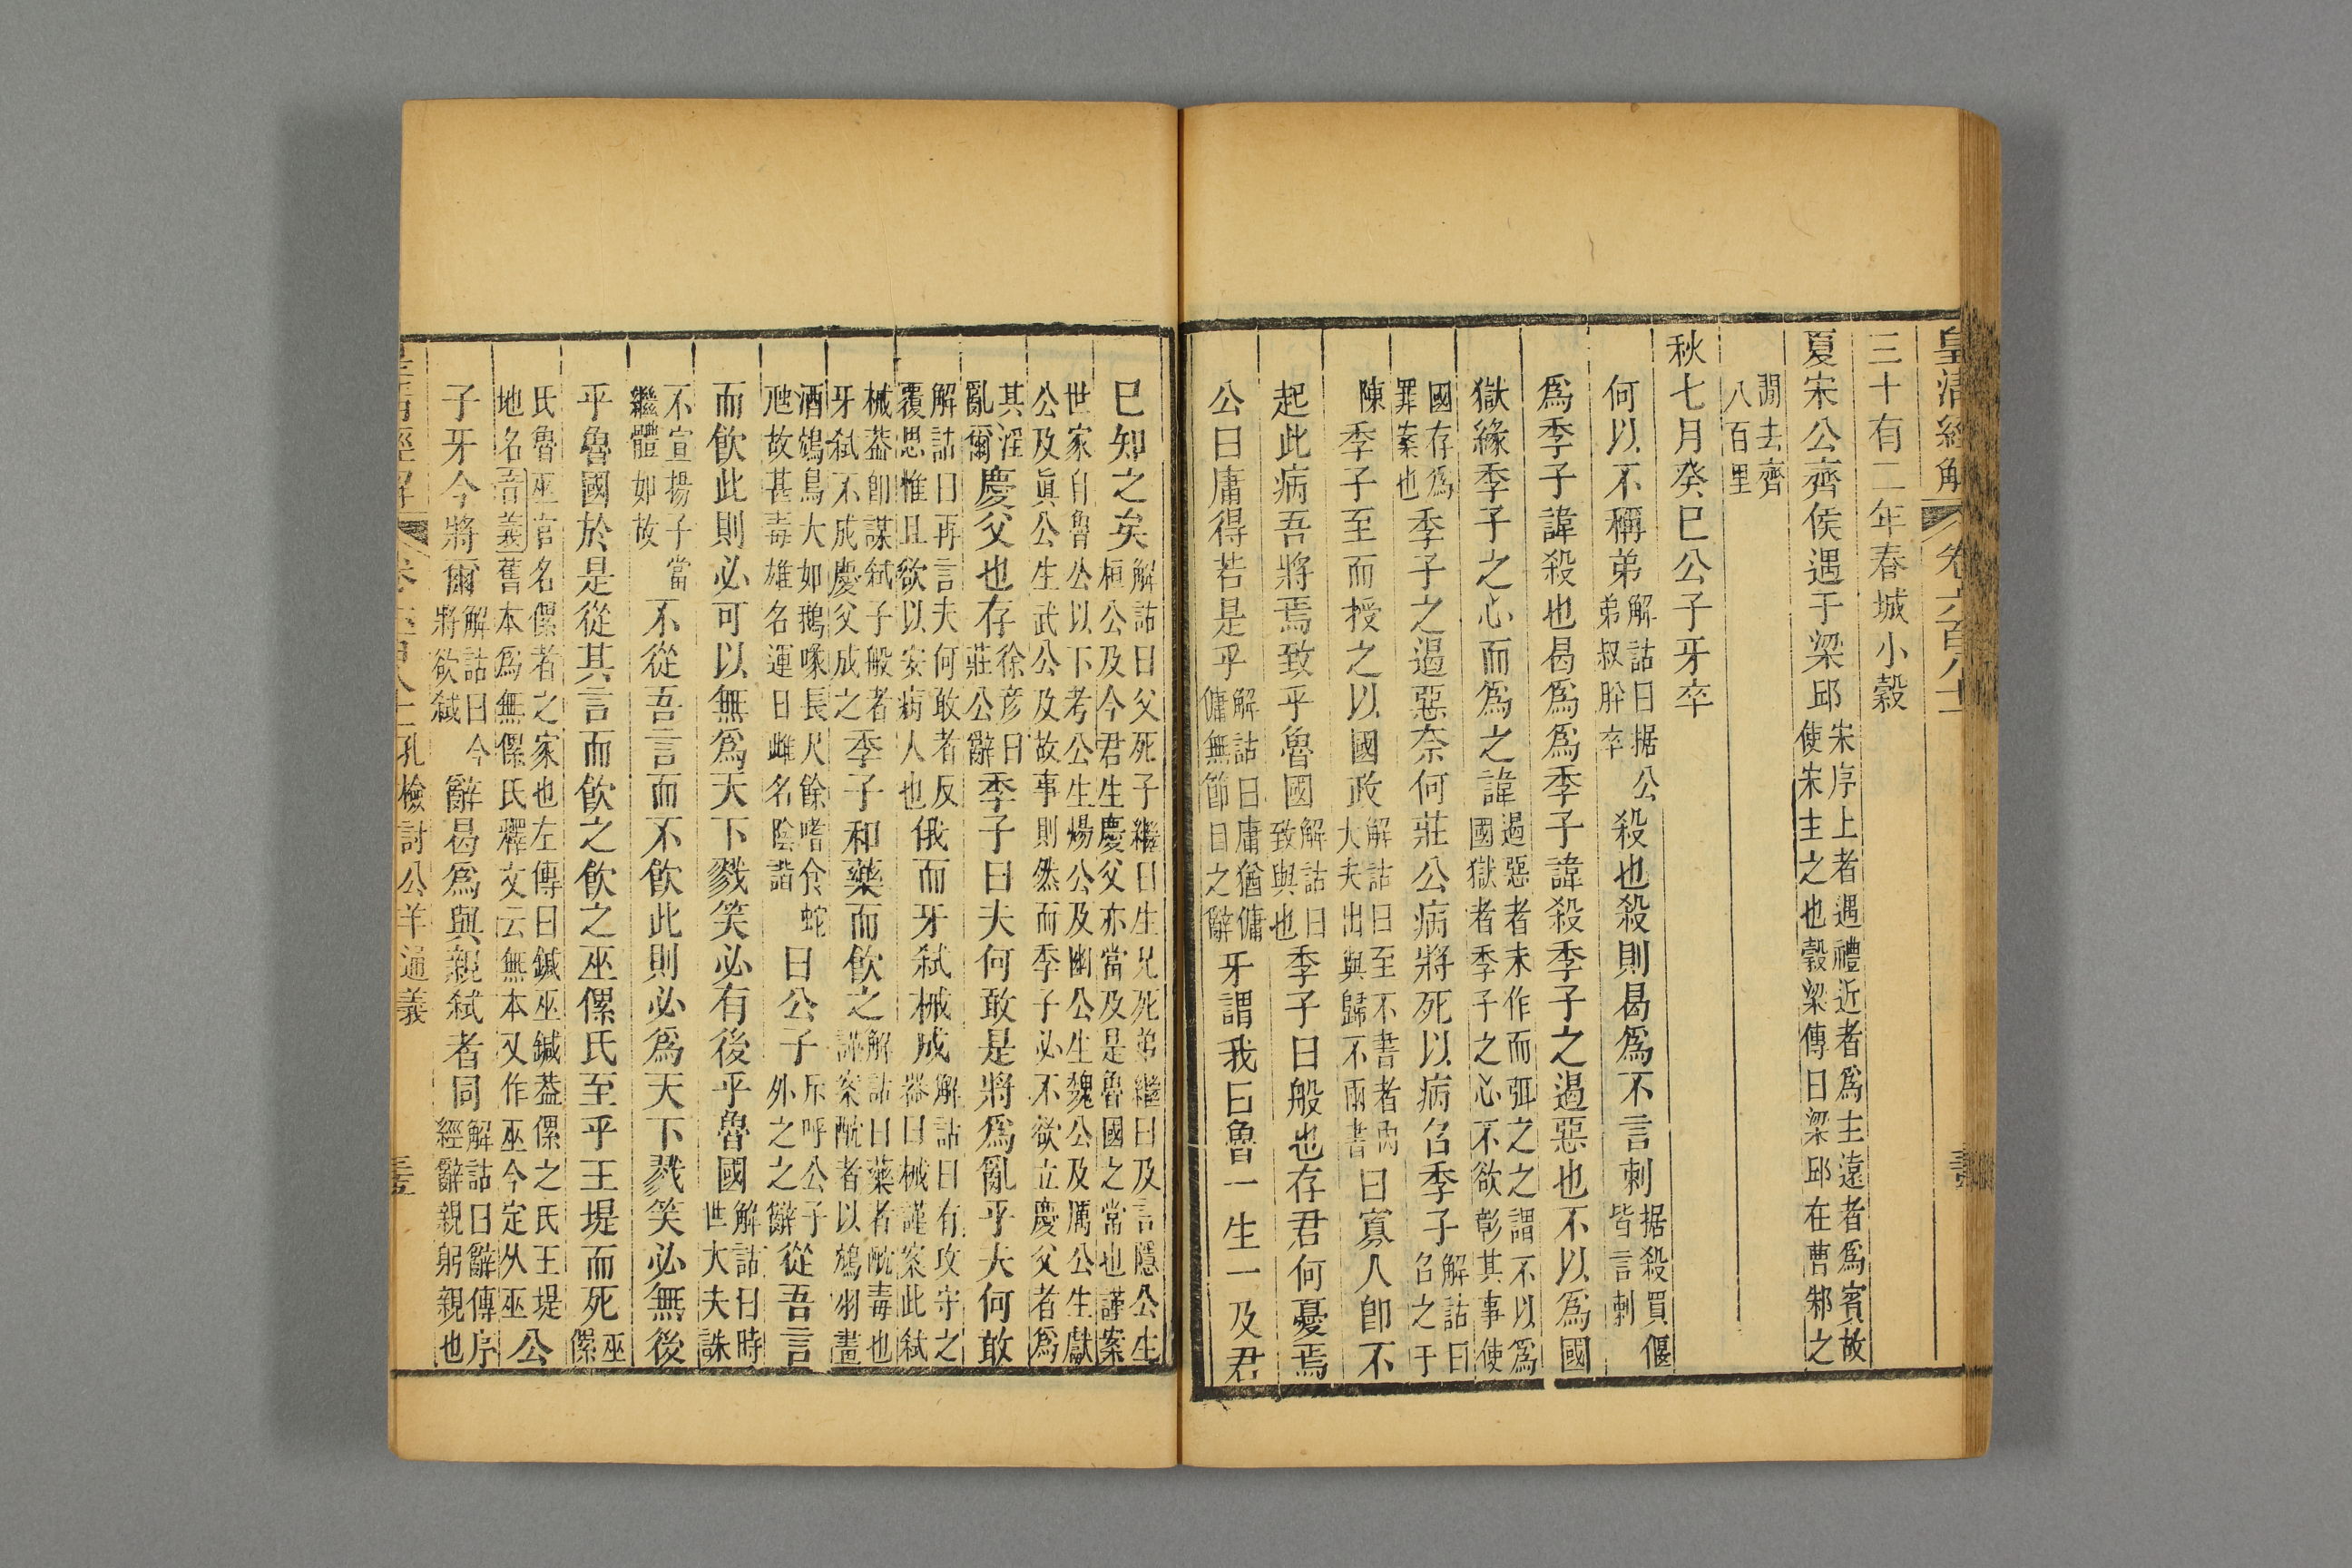 皇清經解 卷六百八十一
三十有二年春城小穀
夏宋公齊侯遇于梁邱宋序上者遇禮近者爲主遠者爲賓故使宋主之也穀梁傳曰梁邱在曹邾之
閒去齊八百里
秋七月癸巳公子牙卒
何以不稱弟解詁曰据公弟叔肸卒殺也殺則曷爲不言刺据殺買偃皆言刺
爲季子諱殺也曷爲爲季子諱殺季子之遏惡也不以爲國
獄緣季子之心而爲之諱遏惡者未作而弭之之謂不以爲國獄者季子之心不欲彰其事使
國存爲罪案也季子之遏惡奈何莊公病將死以病召季子解詁曰召之于
陳季子至而授之以國政解詁曰至不書者內大夫出與歸不兩書曰寡人卽不
起此病吾將焉致乎魯國解詁曰致與也季子曰般也存君何憂焉
公曰庸得若是乎解詁曰庸猶傭傭無節目之辭牙謂我曰魯一生一及君
已知之矣解詁曰父死子繼曰生兄死弟繼曰及言隱公生桓公及今君生慶父亦當及是魯國之常也謹案
世家自魯公以下考公生煬公及幽公生魏公及厲公生獻公及眞公生武公及故事則然而季子必不欲立慶父者爲
其淫亂爾慶父也存徐彥曰莊公辭季子曰夫何敢是將爲亂乎夫何敢
解詁曰再言夫何敢者反覆思惟且欲以安病人也俄而牙弑械成解詁曰有攻守之器曰械謹案此弑
械葢卽謀弑子般者牙弑不成慶父成之季子和藥而飮之解詁曰藥者酖毒也謹案酖者以鴆羽畫
酒鴆鳥大如鵝喙長尺餘嗜食蛇虺故甚毒雄名運日雌名陰諧曰公子斥呼公子外之之辭從吾言
而飮此則必可以無爲天下戮笑必有後乎魯國解詁曰時世大夫誅
不宣揚子當繼體如故不從吾言而不飮此則必爲天下戮笑必無後
乎魯國於是從其言而飮之飮之巫傫氏至乎王堤而死巫傫
氏魯巫官名傫者之家也左傳曰鍼巫鍼葢傫之氏王堤地名音義舊本爲無傫氏釋文云無本又作巫今定从巫公
子牙今將爾解詁曰今將欲弑辭曷爲與親弑者同解詁曰辭傳序經辭親躬親也
孔檢討公羊通義